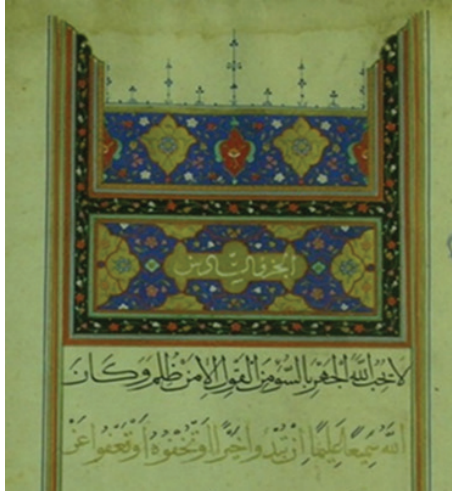 الجزء السادس
لَا يُحِبُّ اللَّهُ الْجَهْرَ بِالسُّوءِ مِنَ الْقَوْلِ إِلَّا مَنْ ظُلِمَ وَكَانَ
اللَّهُ سَمِيعًا عَلِيمًا إِنْ تُبْدُوا خَيْرًا أَوْ تُخْفُوهُ أَوْ تَعْفُوا عَنْ